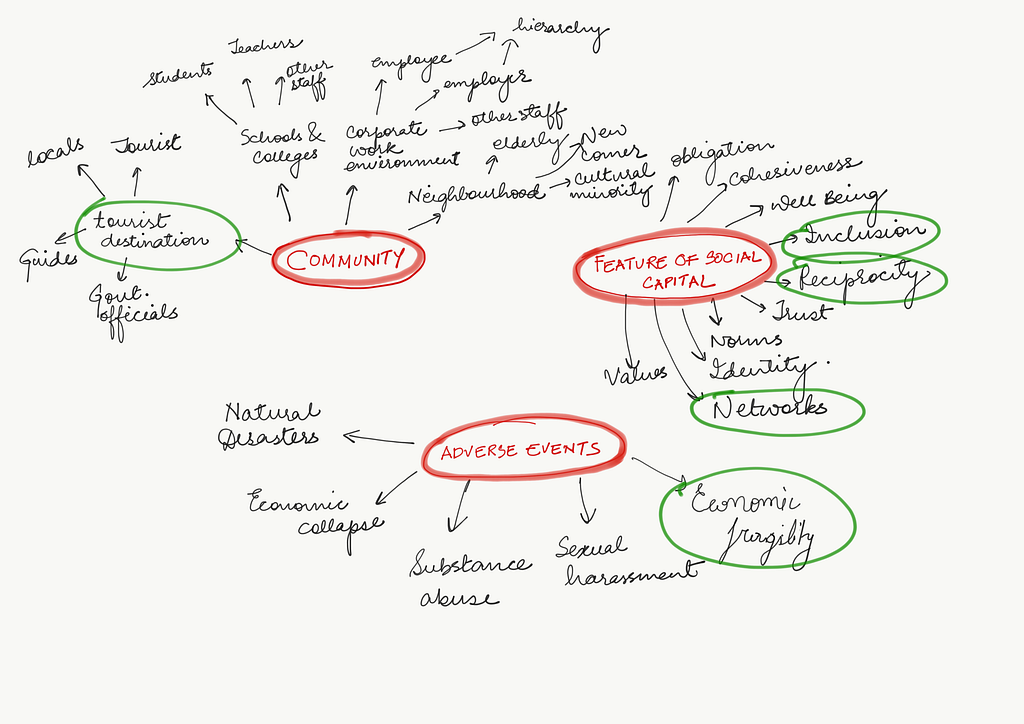 hierarchy
Teachers
employee
students
other
staff
employer
other staff
Schools &
colleges
corporate
work
environment
elderly
New
comer
locals
Tourist
Neighbourhood
cultural
minority
obligation
cohesiveness
Well Being
tourist
destination
Guides
Govt.
officials
COMMUNITY
FEATURE OF SOCIAL
CAPITAL
Inclusion
Reciprocity
Trust
Norms
Identity.
Values
Networks
Natural
Disasters
ADVERSE EVENTS
Economic
collapse
Substance
abuse
Sexual
harassment
Economic
fragility